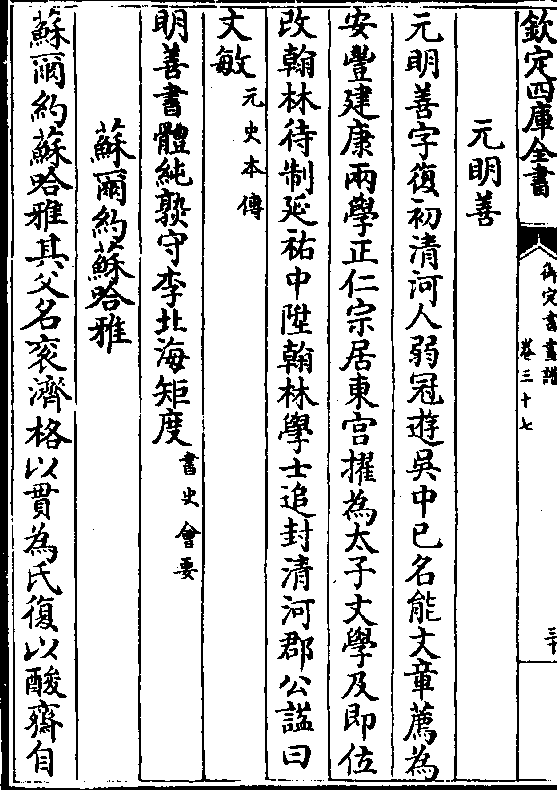 欽定四庫全書
御定書畫譜
卷三十七
三十
元明善
元明善字復初清河人弱冠遊吳中已名能文章薦為
安豐建康兩學正仁宗居東宮擢為太子文學及即位
改翰林待制延祐中陞翰林學士追封清河郡公諡曰
文敏元史本傳
明善書體純熟守李北海矩度書史會要
蘇爾約蘇哈雅
蘇爾約蘇哈雅其父名袞濟格以貫為氏復以酸齋自